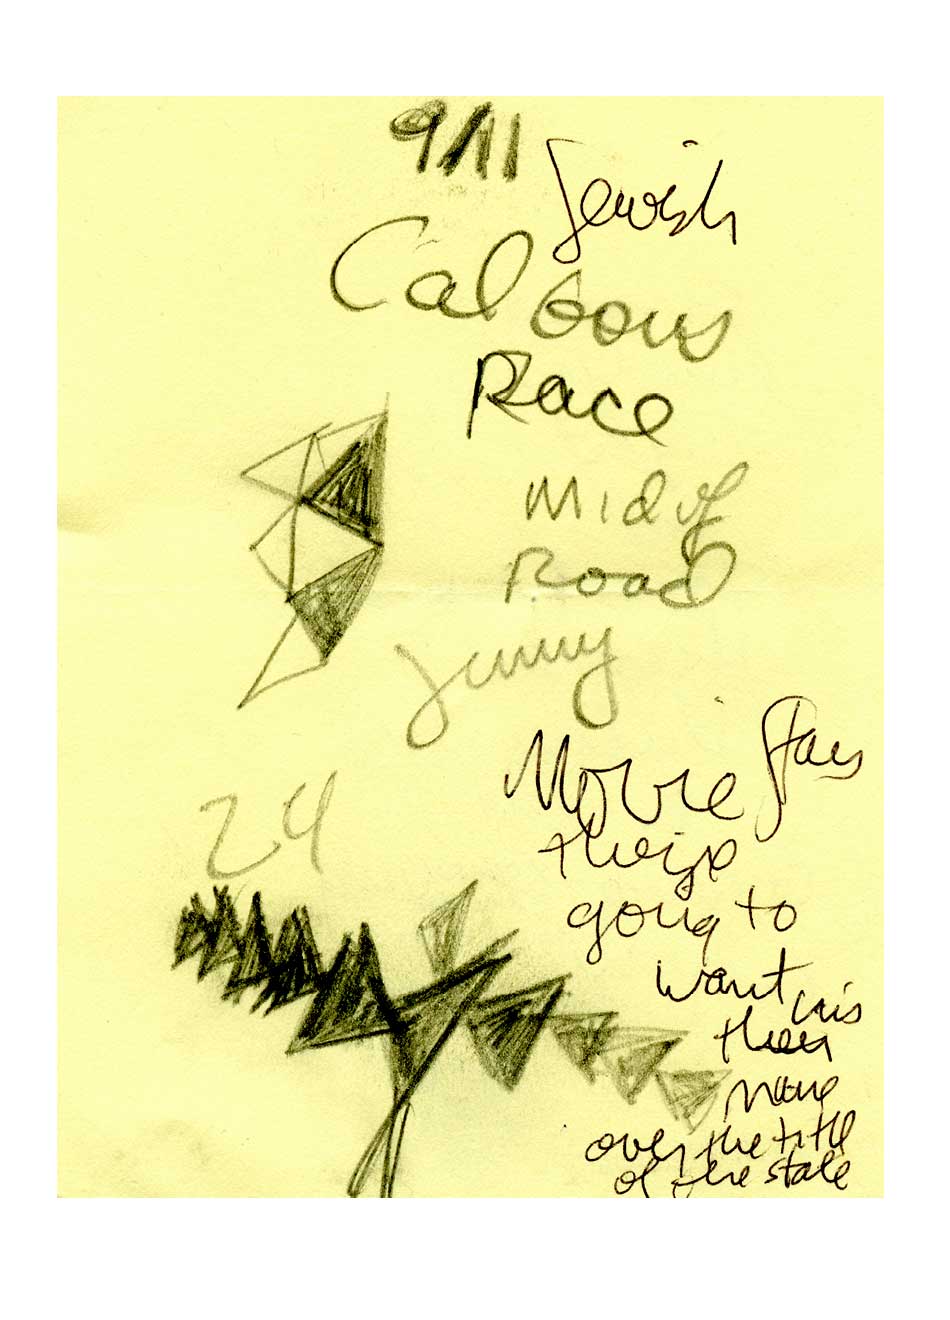 9/11
Jewish
Cal Govs
Race
Mid of
Road
Jimmy
24
Movie Stars
going to
want his
then name
over the title
of the state